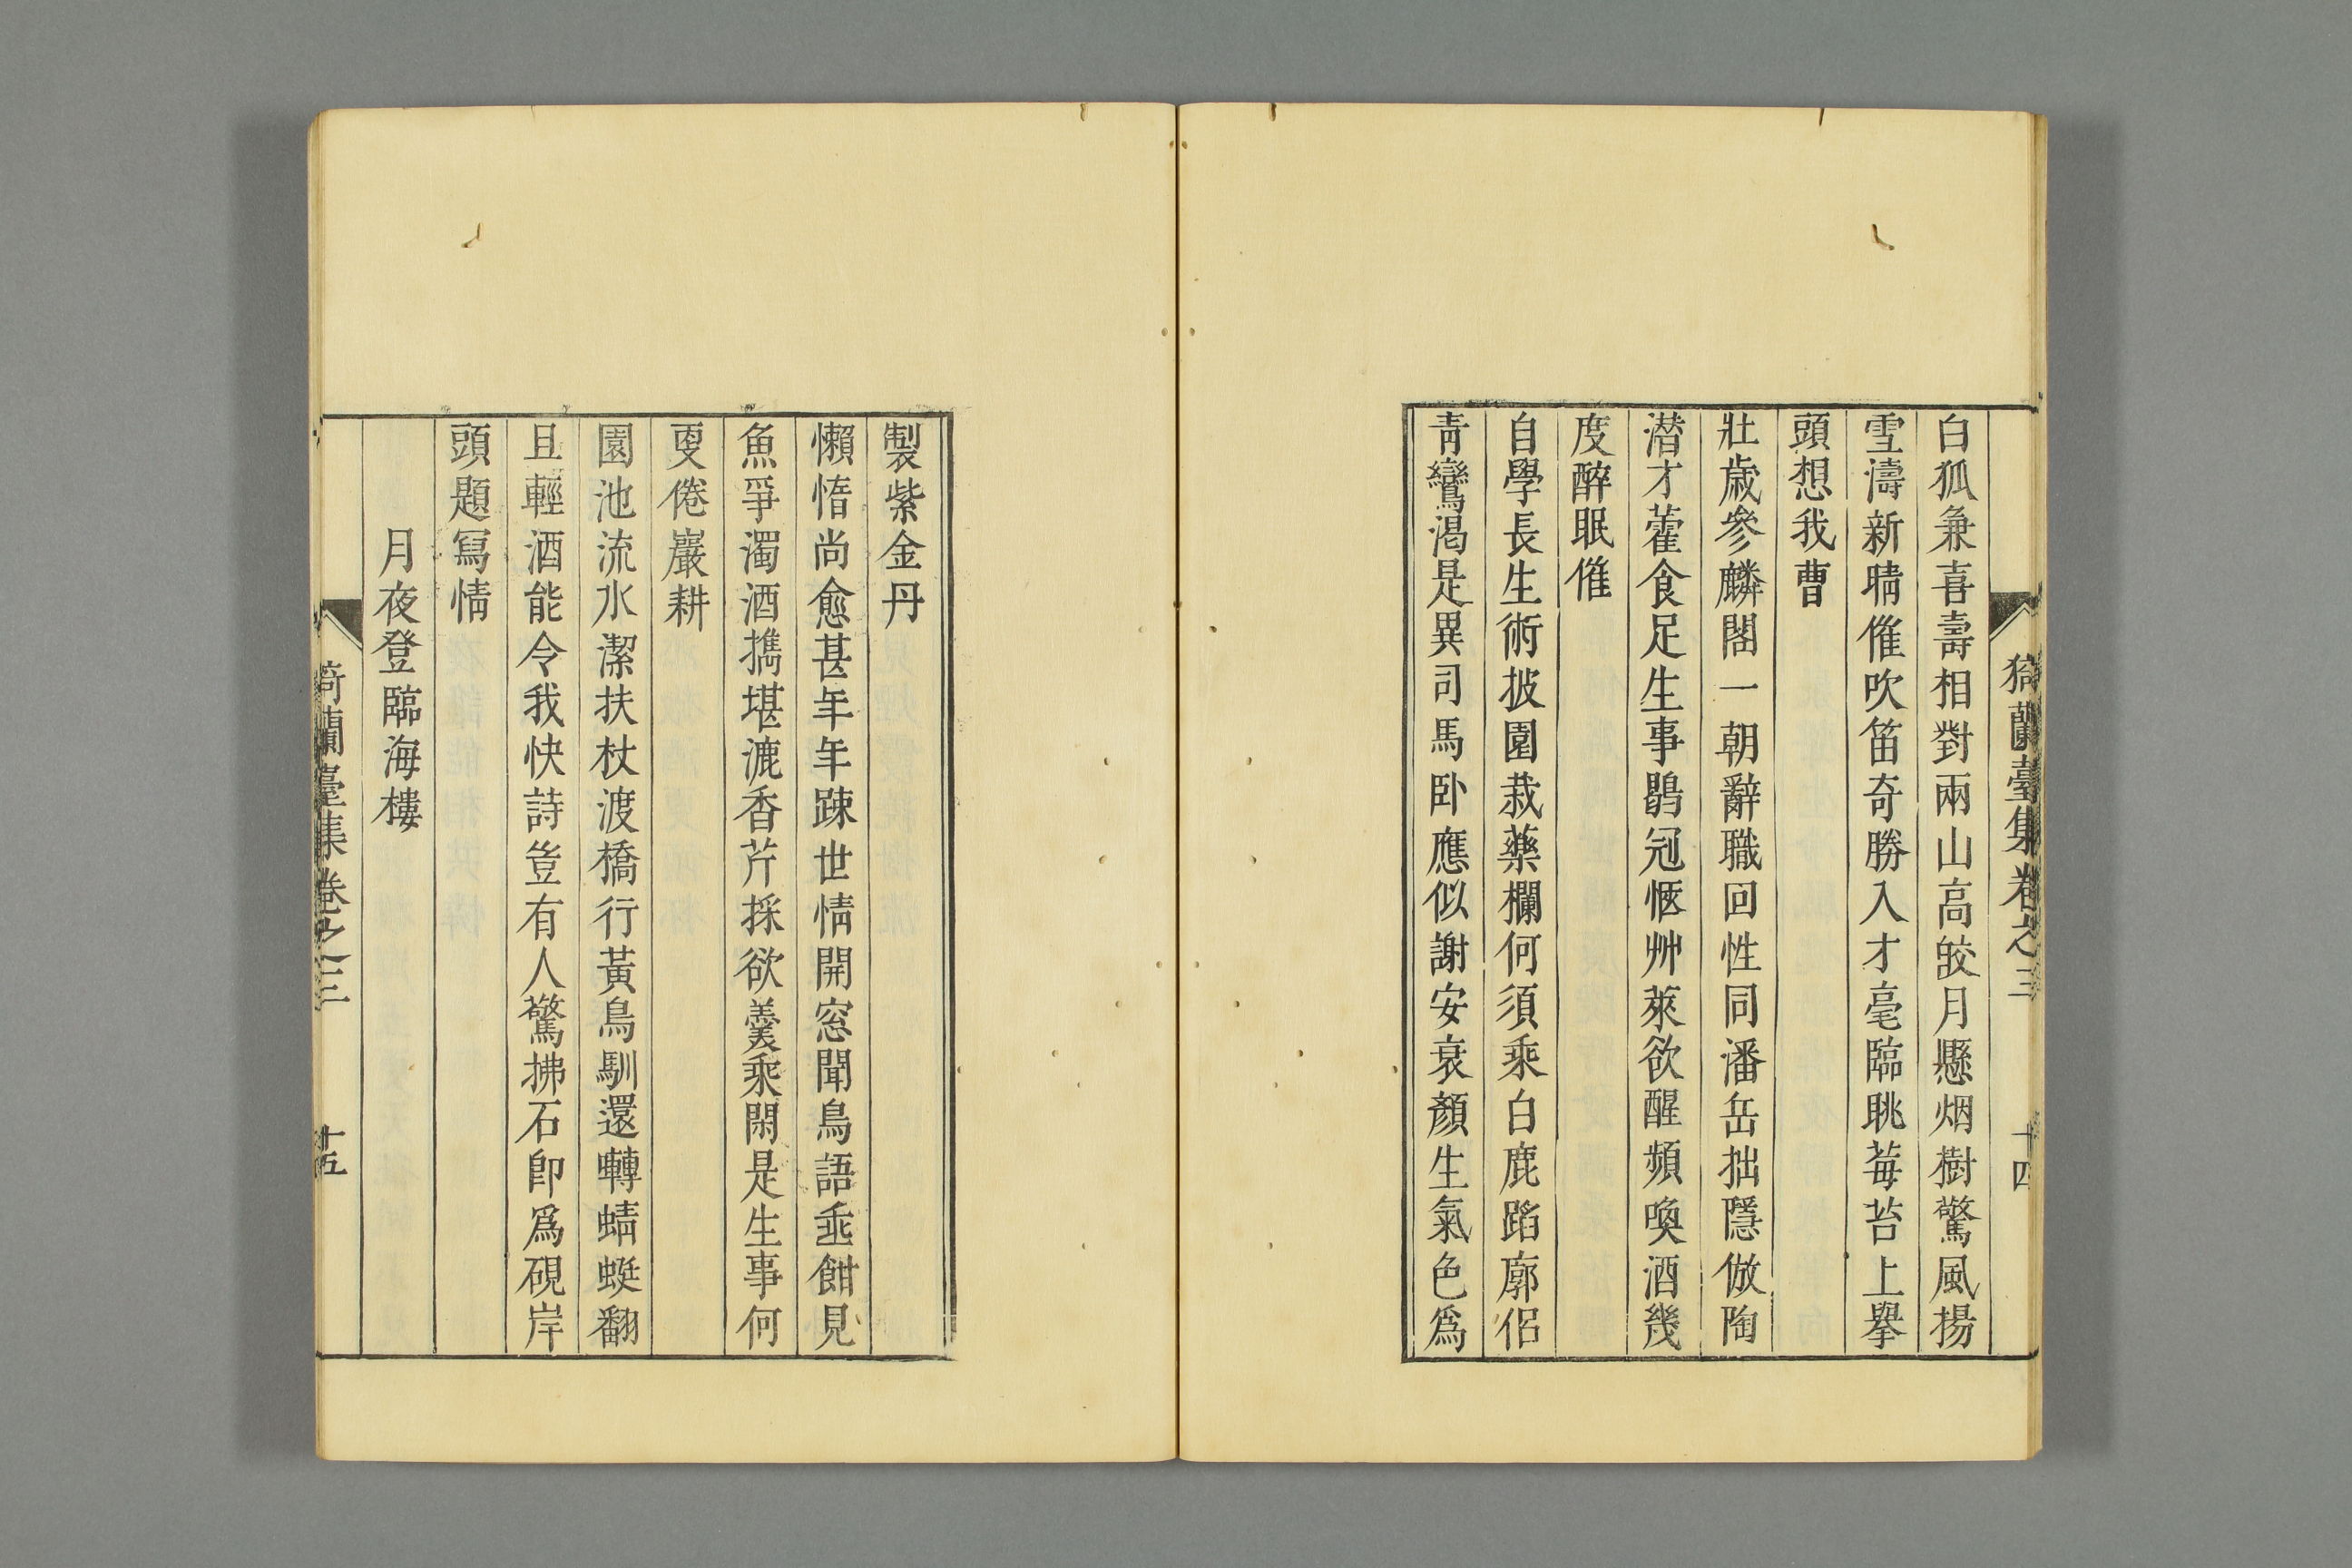 猗蘭臺集卷之三　十四
白狐兼喜壽相對兩山高皎月懸烟樹驚風揚
雪濤新晴催吹笛奇勝入才毫臨眺莓苔上擧
頭想我曹
壯歲參麟閣一朝辭職回性同潘岳拙隱倣陶
潜才藿食足生事鶡冠愜艸萊欲醒頻喚酒幾
度醉眠催
自學長生術披園栽藥欄何須乘白鹿蹈廓侶
靑鸞渴是異司馬卧應似謝安衰顏生氣色爲
製紫金丹
懶惰尚愈甚年年踈世情開窓聞鳥語垂餌見
魚爭濁酒擕堪漉香芹採欲羹乘閑是生事何
更倦巖耕
園池流水潔扶杖渡橋行黃鳥馴還囀蜻蜓翻
且輕酒能令我快詩豈有人驚拂石卽爲硯岸
頭題寫情
月夜登臨海樓
猗蘭臺集卷之三　十五